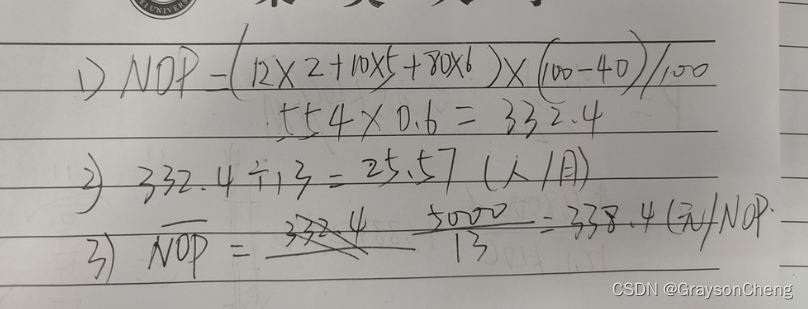 1) NOP=(12×2+10×5+80×6)×(100-40)/100
554×0.6=332.4
2) 332.4÷13=25.57(人/月)
3) NOP= 5000/13=338.4(元)/NOP.
CSDN @GraysonCheng